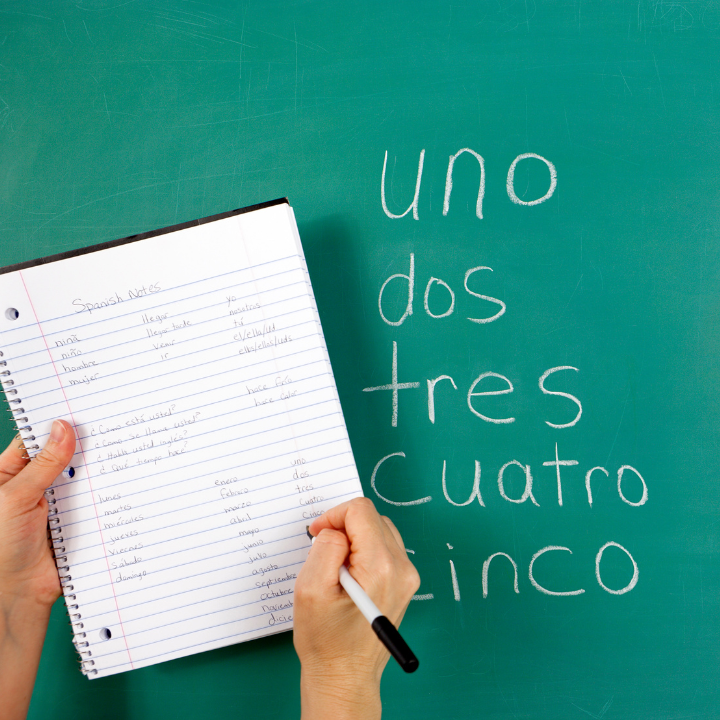 Spanish Notes
niña llegar yo
niño llegar tarde nosotros
hombre venir tú
mujer ir el/ella/ud
ellos/ellas/uds
hace frío
hace calor
¿Como está usted?
¿Como se llama usted?
¿Habla usted inglés?
¿Qué tiempo hace?
lunes enero uno
martes febrero dos
miércoles marzo tres
jueves abril cuatro
viernes mayo cinco
sabado junio
domingo julio
agosto
septiembre
octubre
uno
dos
tres
cuatro
cinco